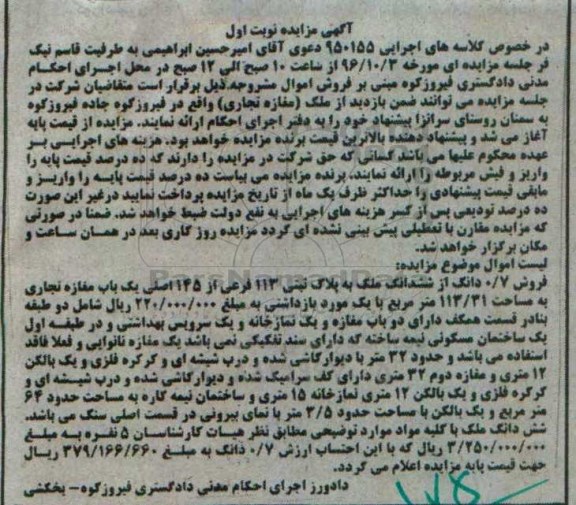 آگهی مزایده نوبت اول
در خصوص کلاسه های اجرایی ۹۵۰۱۵۵ دعوی آقای امیرحسین ابراهیمی به طرفیت قاسم نیک
فر جلسه مزایده ای مورخه ۹۶/۱۰/۳ از ساعت ۱۰ صبح الی ۱۲ صبح در محل اجرای احکام
مدنی دادگستری فیروزکوه مبنی بر فروش اموال مشروحه ذیل برقرار است متقاضیان شرکت در
جلسه مزایده می توانند ضمن بازدید از ملک (مغازه تجاری) واقع در فیروزکوه جاده فیروزکوه
به سمنان روستای سرانزا پیشنهاد خود را به دفتر اجرای احکام ارائه نمایند. مزایده از قیمت پایه
آغاز می شد و پیشنهاد دهنده بالاترین قیمت برنده مزایده خواهد بود. هزینه های اجرایی بر
عهده محکوم علیها می باشد کسانی که حق شرکت در مزایده را دارند که ده درصد قیمت پایه را
واریز و فیش مربوطه را ارائه نمایند. برنده مزایده می بیاست ده درصد قیمت پایه را واریز و
مابقی قیمت پیشنهادی را حداکثر ظرف یک ماه از تاریخ مزایده پرداخت نمایید درغیر این صورت
ده درصد تودیعی پس از کسر هزینه های اجرایی به نفع دولت ضبط خواهد شد. ضمنا در صورتی
که مزایده مقارن با تعطیلی پیش بینی نشده ای گردد مزایده روز کاری بعد در همان ساعت و
مکان برگزار خواهد شد.
لیست اموال موضوع مزایده:
فروش ۰/۷ دانگ از ششدانگ ملک به پلاک ثبتی ۱۱۳ فرعی از ۱۴۵ اصلی یک باب مغازه تجاری
به مساحت ۱۱۳/۳۱ متر مربع با یک مورد بازداشتی به مبلغ ۲۲۰/۰۰۰/۰۰۰ ریال شامل دو طبقه
بنادر قسمت همکف دارای دو باب مغازه و یک نمازخانه و یک سرویس بهداشتی و در طبقه اول
یک ساختمان مسکونی نیمه ساخته که دارای سند تفکیکی نمی باشد یک مغازه نانوایی و فعلا فاقد
استفاده می باشد و حدود ۳۲ متر با دیوارکاشی شده و درب شیشه ای و کرکره فلزی و یک بالکن
۱۲ متری و مغازه دوم ۳۲ متری دارای کف سرامیک شده و دیوارکاشی شده و درب شیشه ای و
کرکره فلزی و یک بالکن ۱۲ متری نمازخانه ۱۵ متری و ساختمان نیمه کاره به مساحت حدود ۶۴
متر مربع و یک بالکن با مساحت حدود ۳/۵ متر با نمای بیرونی در قسمت اصلی سنگ می باشد.
شش دانگ ملک با کلیه مواد موارد توضیحی مطابق نظر هیات کارشناسان ۵ نفره به مبلغ
۳/۲۵۰/۰۰۰/۰۰۰ ریال که با این احتساب ارزش ۰/۷ دانگ به مبلغ ۳۷۹/۱۶۶/۶۶۰ ریال
جهت قیمت پایه مزایده اعلام می گردد.
دادورز اجرای احکام مدنی دادگستری فیروزکوه- بخشی